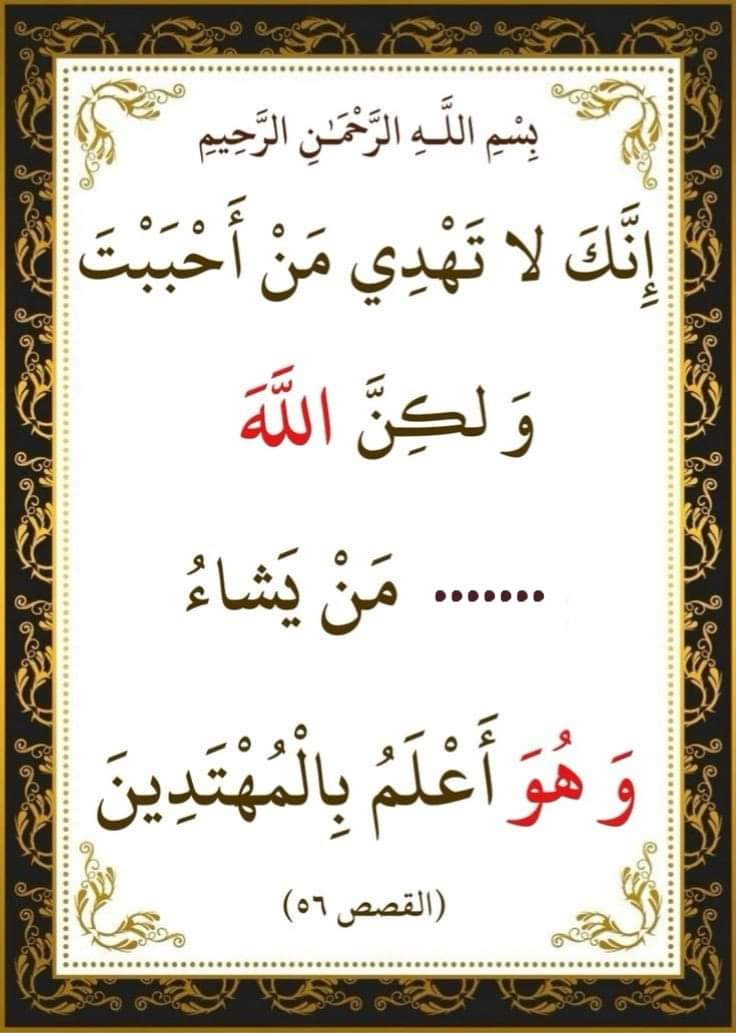 بِسْمِ اللَّـهِ الرَّحْمَـٰنِ الرَّحِيمِ
إِنَّكَ لا تَهْدِي مَنْ أَحْبَبْتَ
وَ لكِنَّ اللَّهَ
....... مَنْ يَشاءُ
وَ هُوَ أَعْلَمُ بِالْمُهْتَدِينَ
(القصص ٥٦)